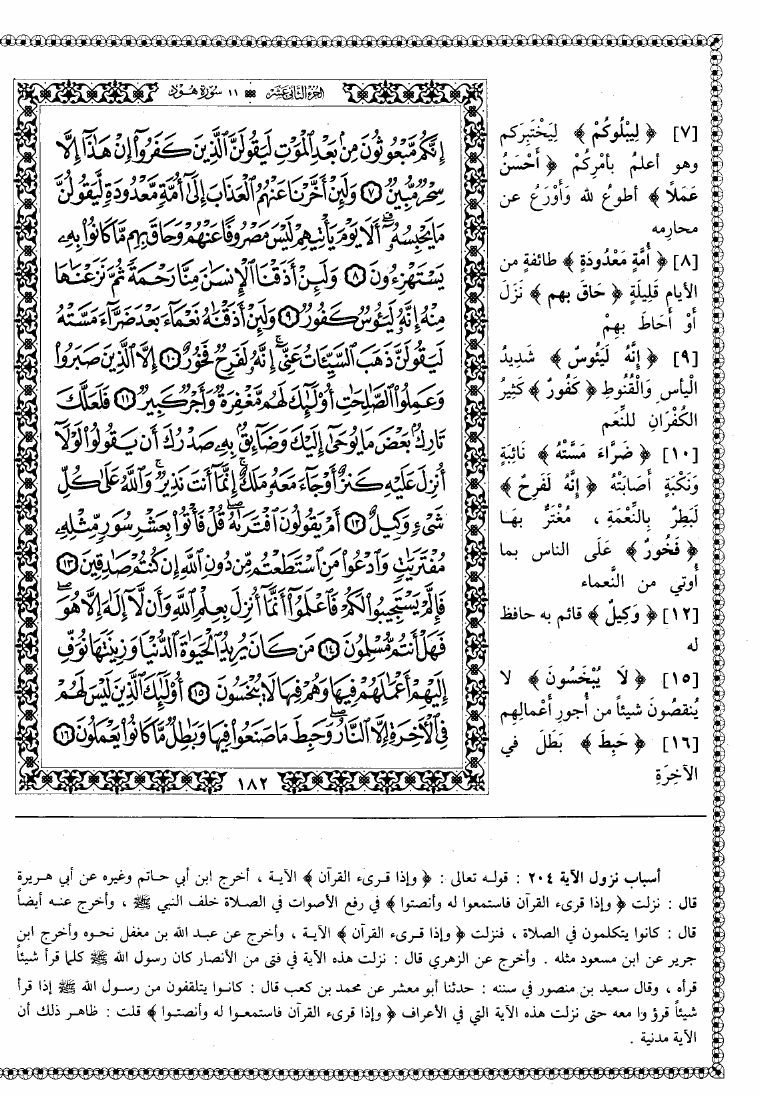 الجزء الثاني عشر ١١ سورة هود
إِنَّكُم مَّبْعُوثُونَ مِنۢ بَعْدِ ٱلْمَوْتِ لَيَقُولَنَّ ٱلَّذِينَ كَفَرُوٓا۟ إِنْ هَٰذَآ إِلَّا
سِحْرٌ مُّبِينٌ ٧ وَلَئِنْ أَخَّرْنَا عَنْهُمُ ٱلْعَذَابَ إِلَىٰٓ أُمَّةٍ مَّعْدُودَةٍ لَّيَقُولُنَّ
مَا يَحْبِسُهُۥٓ ۗ أَلَا يَوْمَ يَأْتِيهِمْ لَيْسَ مَصْرُوفًا عَنْهُمْ وَحَاقَ بِهِم مَّا كَانُوا۟ بِهِۦ
يَسْتَهْزِءُونَ ٨ وَلَئِنْ أَذَقْنَا ٱلْإِنسَٰنَ مِنَّا رَحْمَةً ثُمَّ نَزَعْنَٰهَا
مِنْهُ إِنَّهُۥ لَيَـُٔوسٌ كَفُورٌ ٩ وَلَئِنْ أَذَقْنَٰهُ نَعْمَآءَ بَعْدَ ضَرَّآءَ مَسَّتْهُ
لَيَقُولَنَّ ذَهَبَ ٱلسَّيِّـَٔاتُ عَنِّىٓ ۚ إِنَّهُۥ لَفَرِحٌ فَخُورٌ ١٠ إِلَّا ٱلَّذِينَ صَبَرُوا۟
وَعَمِلُوا۟ ٱلصَّٰلِحَٰتِ أُو۟لَٰٓئِكَ لَهُم مَّغْفِرَةٌ وَأَجْرٌ كَبِيرٌ ١١ فَلَعَلَّكَ
تَارِكٌۢ بَعْضَ مَا يُوحَىٰٓ إِلَيْكَ وَضَآئِقٌۢ بِهِۦ صَدْرُكَ أَن يَقُولُوا۟ لَوْلَآ
أُنزِلَ عَلَيْهِ كَنزٌ أَوْ جَآءَ مَعَهُۥ مَلَكٌ ۚ إِنَّمَآ أَنتَ نَذِيرٌ ۚ وَٱللَّهُ عَلَىٰ كُلِّ
شَىْءٍ وَكِيلٌ ١٢ أَمْ يَقُولُونَ ٱفْتَرَىٰهُ ۖ قُلْ فَأْتُوا۟ بِعَشْرِ سُوَرٍ مِّثْلِهِۦ
مُفْتَرَيَٰتٍ وَٱدْعُوا۟ مَنِ ٱسْتَطَعْتُم مِّن دُونِ ٱللَّهِ إِن كُنتُمْ صَٰدِقِينَ ١٣
فَإِلَّمْ يَسْتَجِيبُوا۟ لَكُمْ فَٱعْلَمُوٓا۟ أَنَّمَآ أُنزِلَ بِعِلْمِ ٱللَّهِ وَأَن لَّآ إِلَٰهَ إِلَّا هُوَ ۖ
فَهَلْ أَنتُم مُّسْلِمُونَ ١٤ مَن كَانَ يُرِيدُ ٱلْحَيَوٰةَ ٱلدُّنْيَا وَزِينَتَهَا نُوَفِّ
إِلَيْهِمْ أَعْمَٰلَهُمْ فِيهَا وَهُمْ فِيهَا لَا يُبْخَسُونَ ١٥ أُو۟لَٰٓئِكَ ٱلَّذِينَ لَيْسَ لَهُمْ
فِى ٱلْءَاخِرَةِ إِلَّا ٱلنَّارُ ۖ وَحَبِطَ مَا صَنَعُوا۟ فِيهَا وَبَٰطِلٌ مَّا كَانُوا۟ يَعْمَلُونَ ١٦
١٨٢
[٧] ﴿ لِيَبْلُوكُمْ ﴾ لِيَخْتَبِرَكم
وهو أعلمُ بأمْرِكُمْ ﴿ أَحْسَنُ
عَمَلاً ﴾ أطوعُ لله وَأَوْرَعُ عن
محارمه
[٨] ﴿ أُمَّةٍ مَعْدُودَةٍ ﴾ طائفةٍ من
الأيام قَلِيلَةٍ ﴿ حَاقَ بهم ﴾ نَزَلَ
أَوْ أَحَاطَ بِهِمْ
[٩] ﴿ إِنَّهُ لَيَئوسٌ ﴾ شَدِيدُ
الْيأسِ وَالْقُنُوطِ ﴿ كَفُورٌ ﴾ كَثِيرُ
الكُفْرَانِ للنِّعَم
[١٠] ﴿ ضَرَّاءَ مَسَّتْهُ ﴾ نَائِبَةٍ
وَنَكْبَةٍ أَصَابَتْهُ ﴿ إِنَّهُ لَفَرِحٌ ﴾
لَبَطِرٌ بِالنِّعْمَةِ ، مُغْتَرٌّ بهَا
﴿ فَخُورٌ ﴾ عَلَى الناسِ بما
أُوتي من النَّعماء
[١٢] ﴿ وَكِيلٌ ﴾ قائم به حافظ
له
[١٥] ﴿ لَا يُبْخَسُونَ ﴾ لا
يُنقصُونَ شيئاً من أُجورِ أعْمالِهم
[١٦] ﴿ حَبِطَ ﴾ بَطَلَ في
الآخِرَةِ
أسباب نزول الآية ٢٠٤ : قوله تعالى : ﴿ وإذا قرىء القرآن ﴾ الآية ، أخرج ابن أبي حاتم وغيره عن أبي هريرة
قال : نزلت ﴿ وإذا قرىء القرآن فاستمعوا له وأنصتوا ﴾ في رفع الأصوات في الصلاة خلف النبي ﷺ ، وأخرج عنه أيضاً
قال : كانوا يتكلمون في الصلاة ، فنزلت ﴿ وإذا قرىء القرآن ﴾ الآية ، وأخرج عن عبد الله بن مغفل نحوه وأخرج ابن
جرير عن ابن مسعود مثله . وأخرج عن الزهري قال : نزلت هذه الآية في فتى من الأنصار كان رسول الله ﷺ كلما قرأ شيئاً
قرأه ، وقال سعيد بن منصور في سننه : حدثنا أبو معشر عن محمد بن كعب قال : كانوا يتلقفون من رسول الله ﷺ إذا قرأ
شيئاً قرؤوا معه حتى نزلت هذه الآية التي في الأعراف ﴿ وإذا قرىء القرآن فاستمعوا له وأنصتوا ﴾ قلت : ظاهر ذلك أن
الآية مدنية .